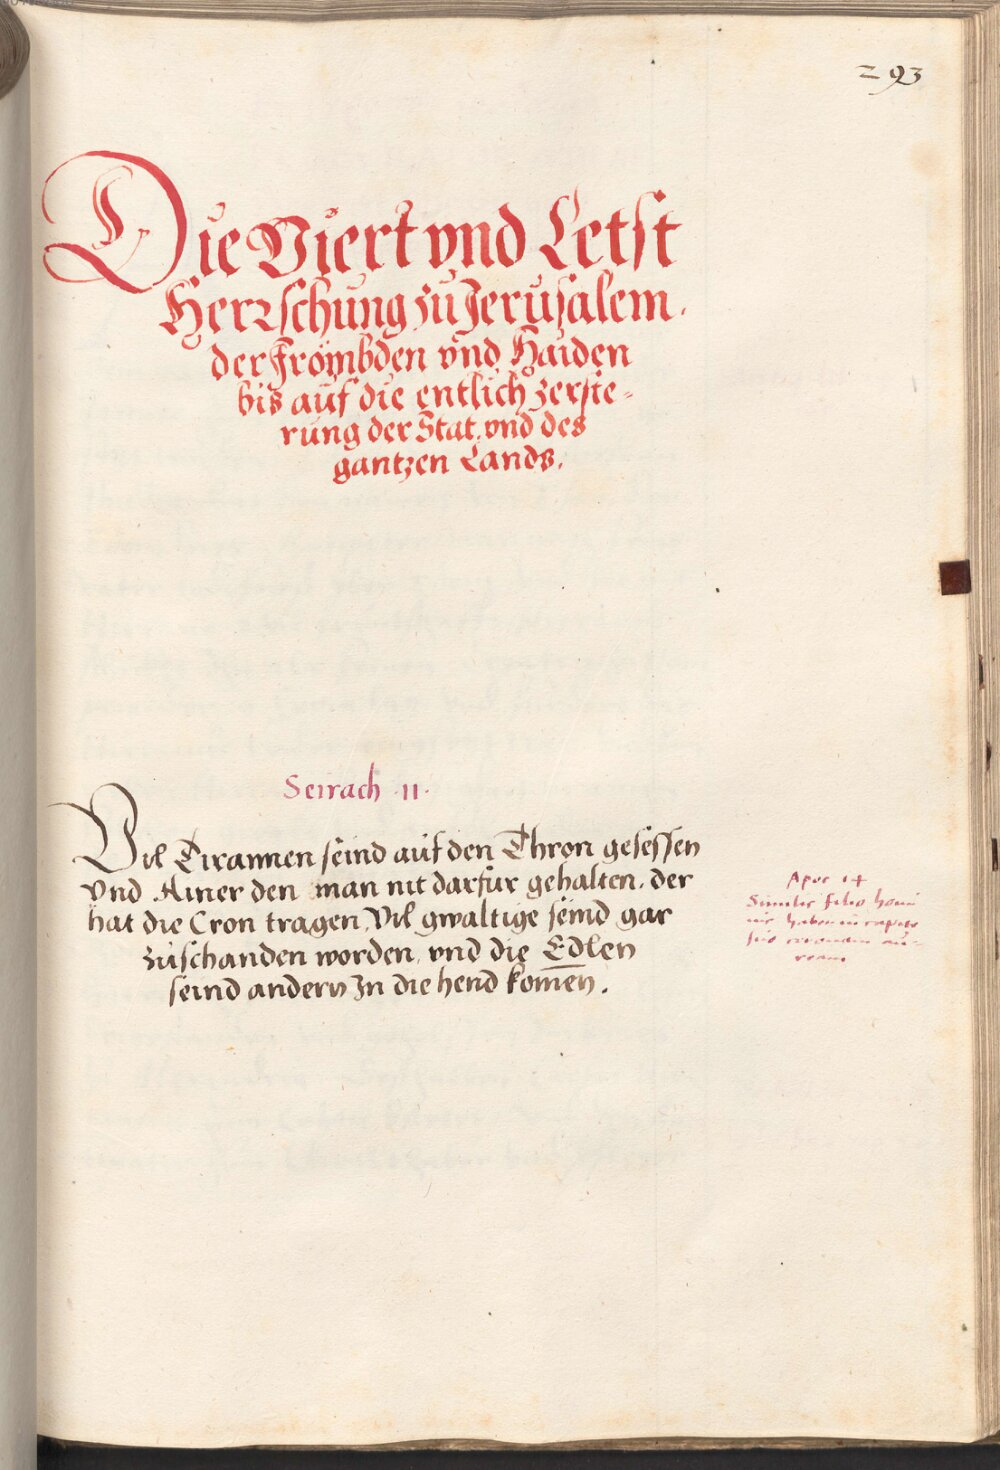 293
Die Viert vnd Letst
Herrschung zu Jerusalem.
der Frömbden vnd Haiden
bis auf die entlich zerste-
rung der Stat, vnd des
gantzen Lands.
Seirach ·11·
Vil Tirannen seind auf den Thron gesessen
Vnd Ainer den man nit darfur gehalten, der
hat die Cron tragen, Vil gwaltige seind gar
zuschanden worden, vnd die Edlen
seind andern In die hend komen.
Apoc 14
Similis filio homi
nis habens in capite
suo coronam au-
ream